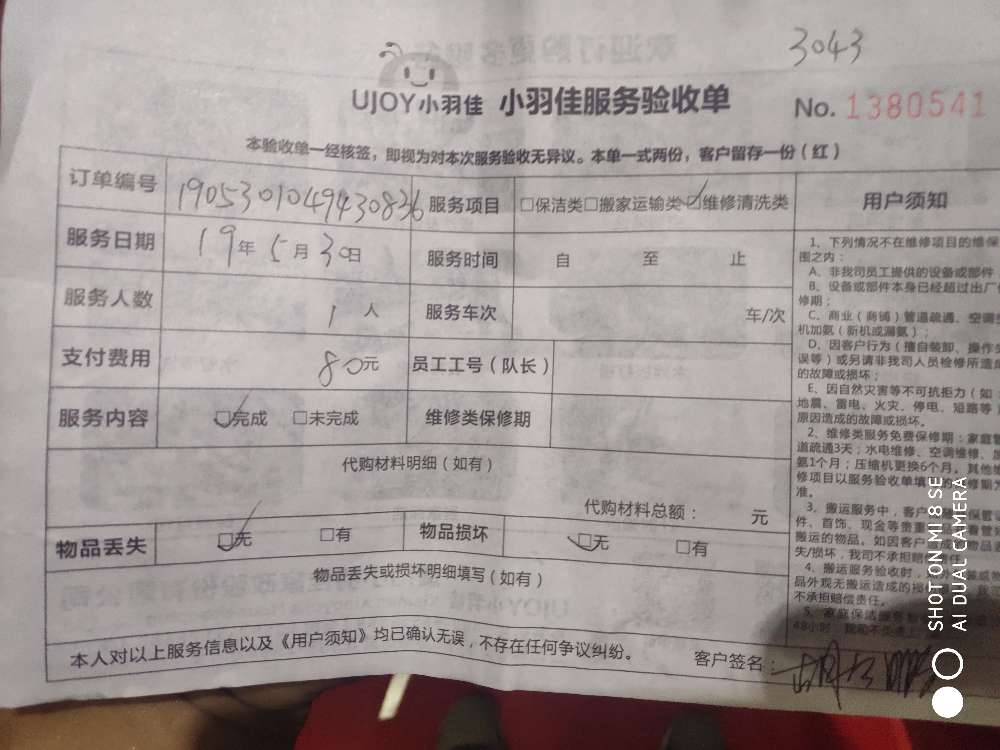 3043
UJOY小羽佳 小羽佳服务验收单 No. 1380541
本验收单一经核签，即视为对本次服务验收无异议。本单一式两份，客户留存一份（红）
订单编号 190530104943083 服务项目 □保洁类□搬家运输类☑维修清洗类 用户须知
服务日期 19年5月30日 服务时间 自 至 止
服务人数 1人 服务车次 车/次
支付费用 80元 员工工号（队长）
服务内容 ☑完成 □未完成 维修类保修期
代购材料明细（如有）
代购材料总额： 元
物品丢失 ☑无 □有 物品损坏 ☑无 □有
物品丢失或损坏明细填写（如有）
本人对以上服务信息以及《用户须知》均已确认无误，不存在任何争议纠纷。
客户签名：
1、下列情况不在维修项目的维保
围之内：
A、非我司员工提供的设备或部件
B、设备或部件本身已经超过出厂
修期；
C、商业（商铺）管道疏通、空调
机加氨（新机或漏氨）；
D、因客户行为（擅自装卸、操作失
误等）或另请非我司人员检修所造成
的故障或损坏；
E、因自然灾害等不可抗拒力（如
地震、雷电、火灾、停电、短路等
原因造成的故障或损坏。
2、维修类服务免费保修期：家庭管
道疏通3天；水电维修、空调维修、加
氨1个月；压缩机更换6月。其他
修项目以服务验收单填 的 修期为
准。
3、搬运服务中，客户 保管
件、首饰、现金等贵重 看管
搬运的物品。如因客户 物品
失/损坏，我司不承担赔
4、搬运服务验收时，
品外观无搬运造成的损
不承担赔偿责任。
5、家庭保洁服务
48小时
SHOT ON MI 8 SE
AI DUAL CAMERA